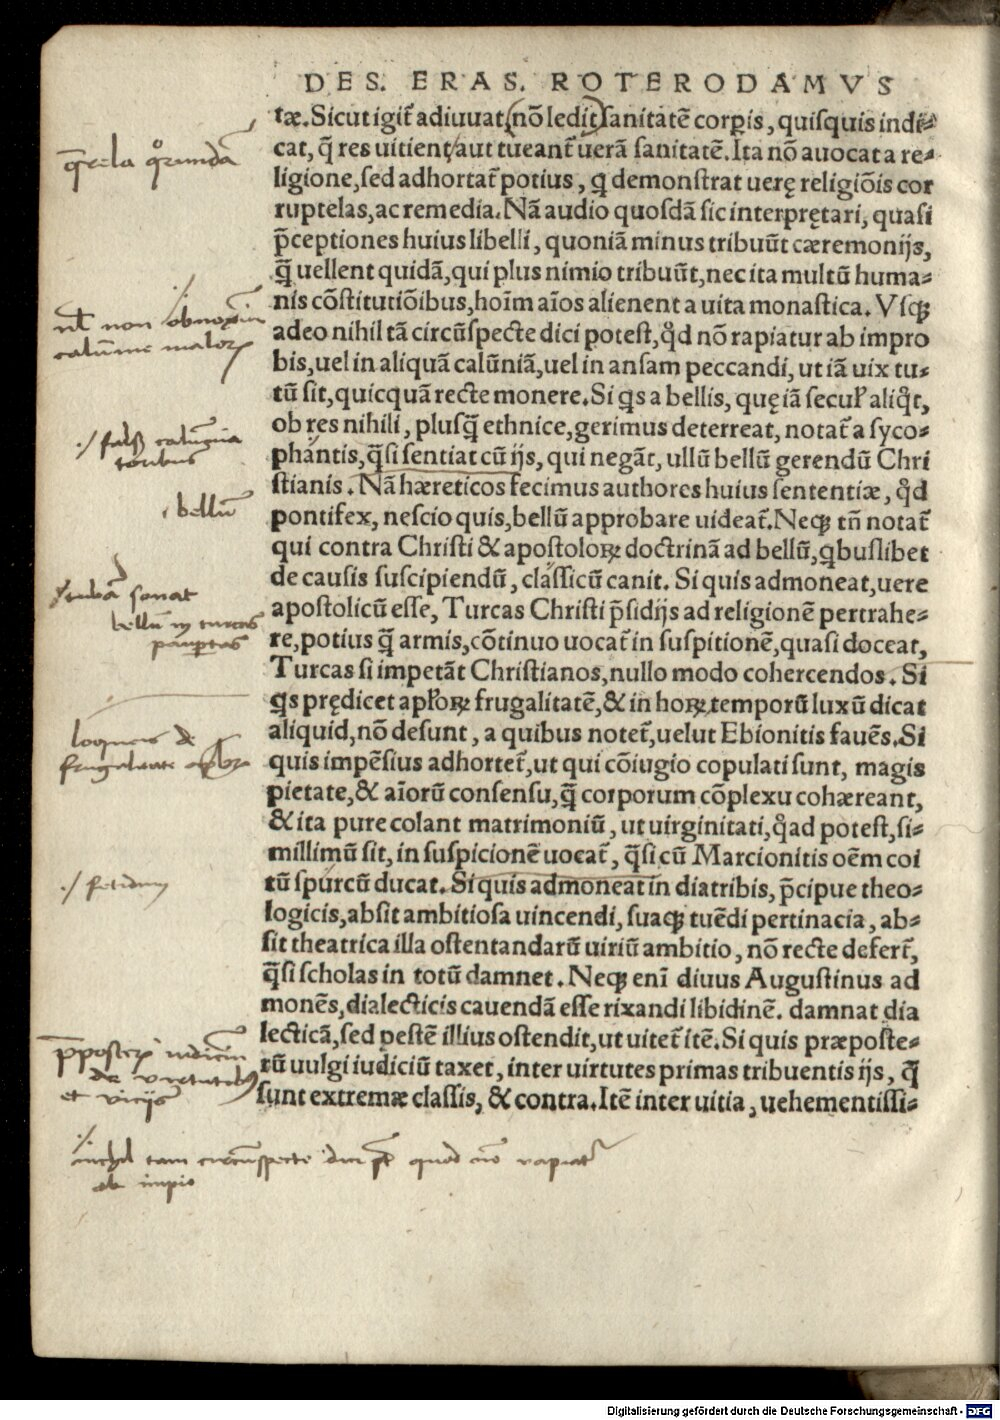 DES. ERAS. ROTERODAMVS
tæ.Sicut igit̃ adiuuat, nõ ledit sanitatẽ corꝑis, quisquis indi⸗
cat, q̃ res uitient, aut tueant̃ uerã sanitatẽ. Ita nõ auocat a re⸗
ligione, sed adhortat̃ potius, q demonstrat uerę religiõis cor
ruptelas, ac remedia. Nã audio quosdã sic interprętari, quasi
p̃ceptiones huius libelli, quoniã minus tribuũt cæremonijs,
q̃ uellent quidã, qui plus nimio tribuũt, nec ita multũ huma⸗
nis cõstitutiõibus, hoĩm aĩos alienent a uita monastica. Vsqꝫ
adeo nihil tã circũspecte dici potest, qd̓ nõ rapiatur ab impro
bis, uel in aliquã calũniã, uel in ansam peccandi, ut iã uix tu⸗
tũ sit, quicquã recte monere. Si qs a bellis, quę iã secuł aliqt,
ob res nihili, plusq̃ ethnice, gerimus deterreat, notat̃ a syco⸗
phantis, q̃si sentiat cũ ijs, qui negãt, ullũ bellũ gerendũ Chri
stianis. Nã hæreticos fecimus authores huius sententiæ, qd̓
pontifex, nescio quis, bellũ approbare uideat̃. Neqꝫ tñ notat̃
qui contra Christi & apostoloꝝ doctrinã ad bellũ, qbuslibet
de causis suscipiendũ, classicũ canit. Si quis admoneat, uere
apostolicũ esse, Turcas Christi p̃sidijs ad religionẽ pertrahe⸗
re, potius q̃ armis, cõtinuo uocat̃ in suspitionẽ, quasi doceat,
Turcas si impetãt Christianos, nullo modo cohercendos. Si
qs prędicet apłoꝝ frugalitatẽ, & in hoꝝ temporũ luxũ dicat
aliquid, nõ desunt, a quibus notet̃, uelut Ebionitis fauẽs. Si
quis impẽsius adhortet̃, ut qui cõiugio copulati sunt, magis
pietate, & aĩorũ consensu, q̃ corporum cõplexu cohæreant,
& ita pure colant matrimoniũ, ut uirginitati, qad potest, si⸗
millimũ sit, in suspicionẽ uocat̃, q̃si cũ Marcionitis oẽm coi
tũ spurcũ ducat. Si quis admoneat in diatribis, p̃cipue theo⸗
logicis, absit ambitiosa uincendi, suaqꝫ tuẽdi pertinacia, ab⸗
sit theatrica illa ostentandarũ uiriũ ambitio, nõ recte defert̃,
q̃si scholas in totũ damnet. Neqꝫ enĩ diuus Augustinus ad
monẽs, dialecticis cauendã esse rixandi libidinẽ. damnat dia
lecticã, sed pestẽ illius ostendit, ut uitet̃ itẽ. Si quis præposte⸗
rũ uulgi iudiciũ taxet, inter uirtutes primas tribuentis ijs, q̃
sunt extremæ classis, & contra. Itẽ inter uitia, uehementissi⸗
q̃rela qͦrundã
nł non obnoxiũ
calũnie maloꝝ
falsis calũnia
toribus
bellũ
tubã sonat
bellũ in turcas
loquens de
frugalitate aploꝝ
p̃posterũ iudiciũ
de virtutibus
et vicijs
nichil tam circũspecte dici pt̃ quod nõ rapiat̃
ab impio
Digitalisierung gefördert durch die Deutsche Forschungsgemeinschaft - DFG